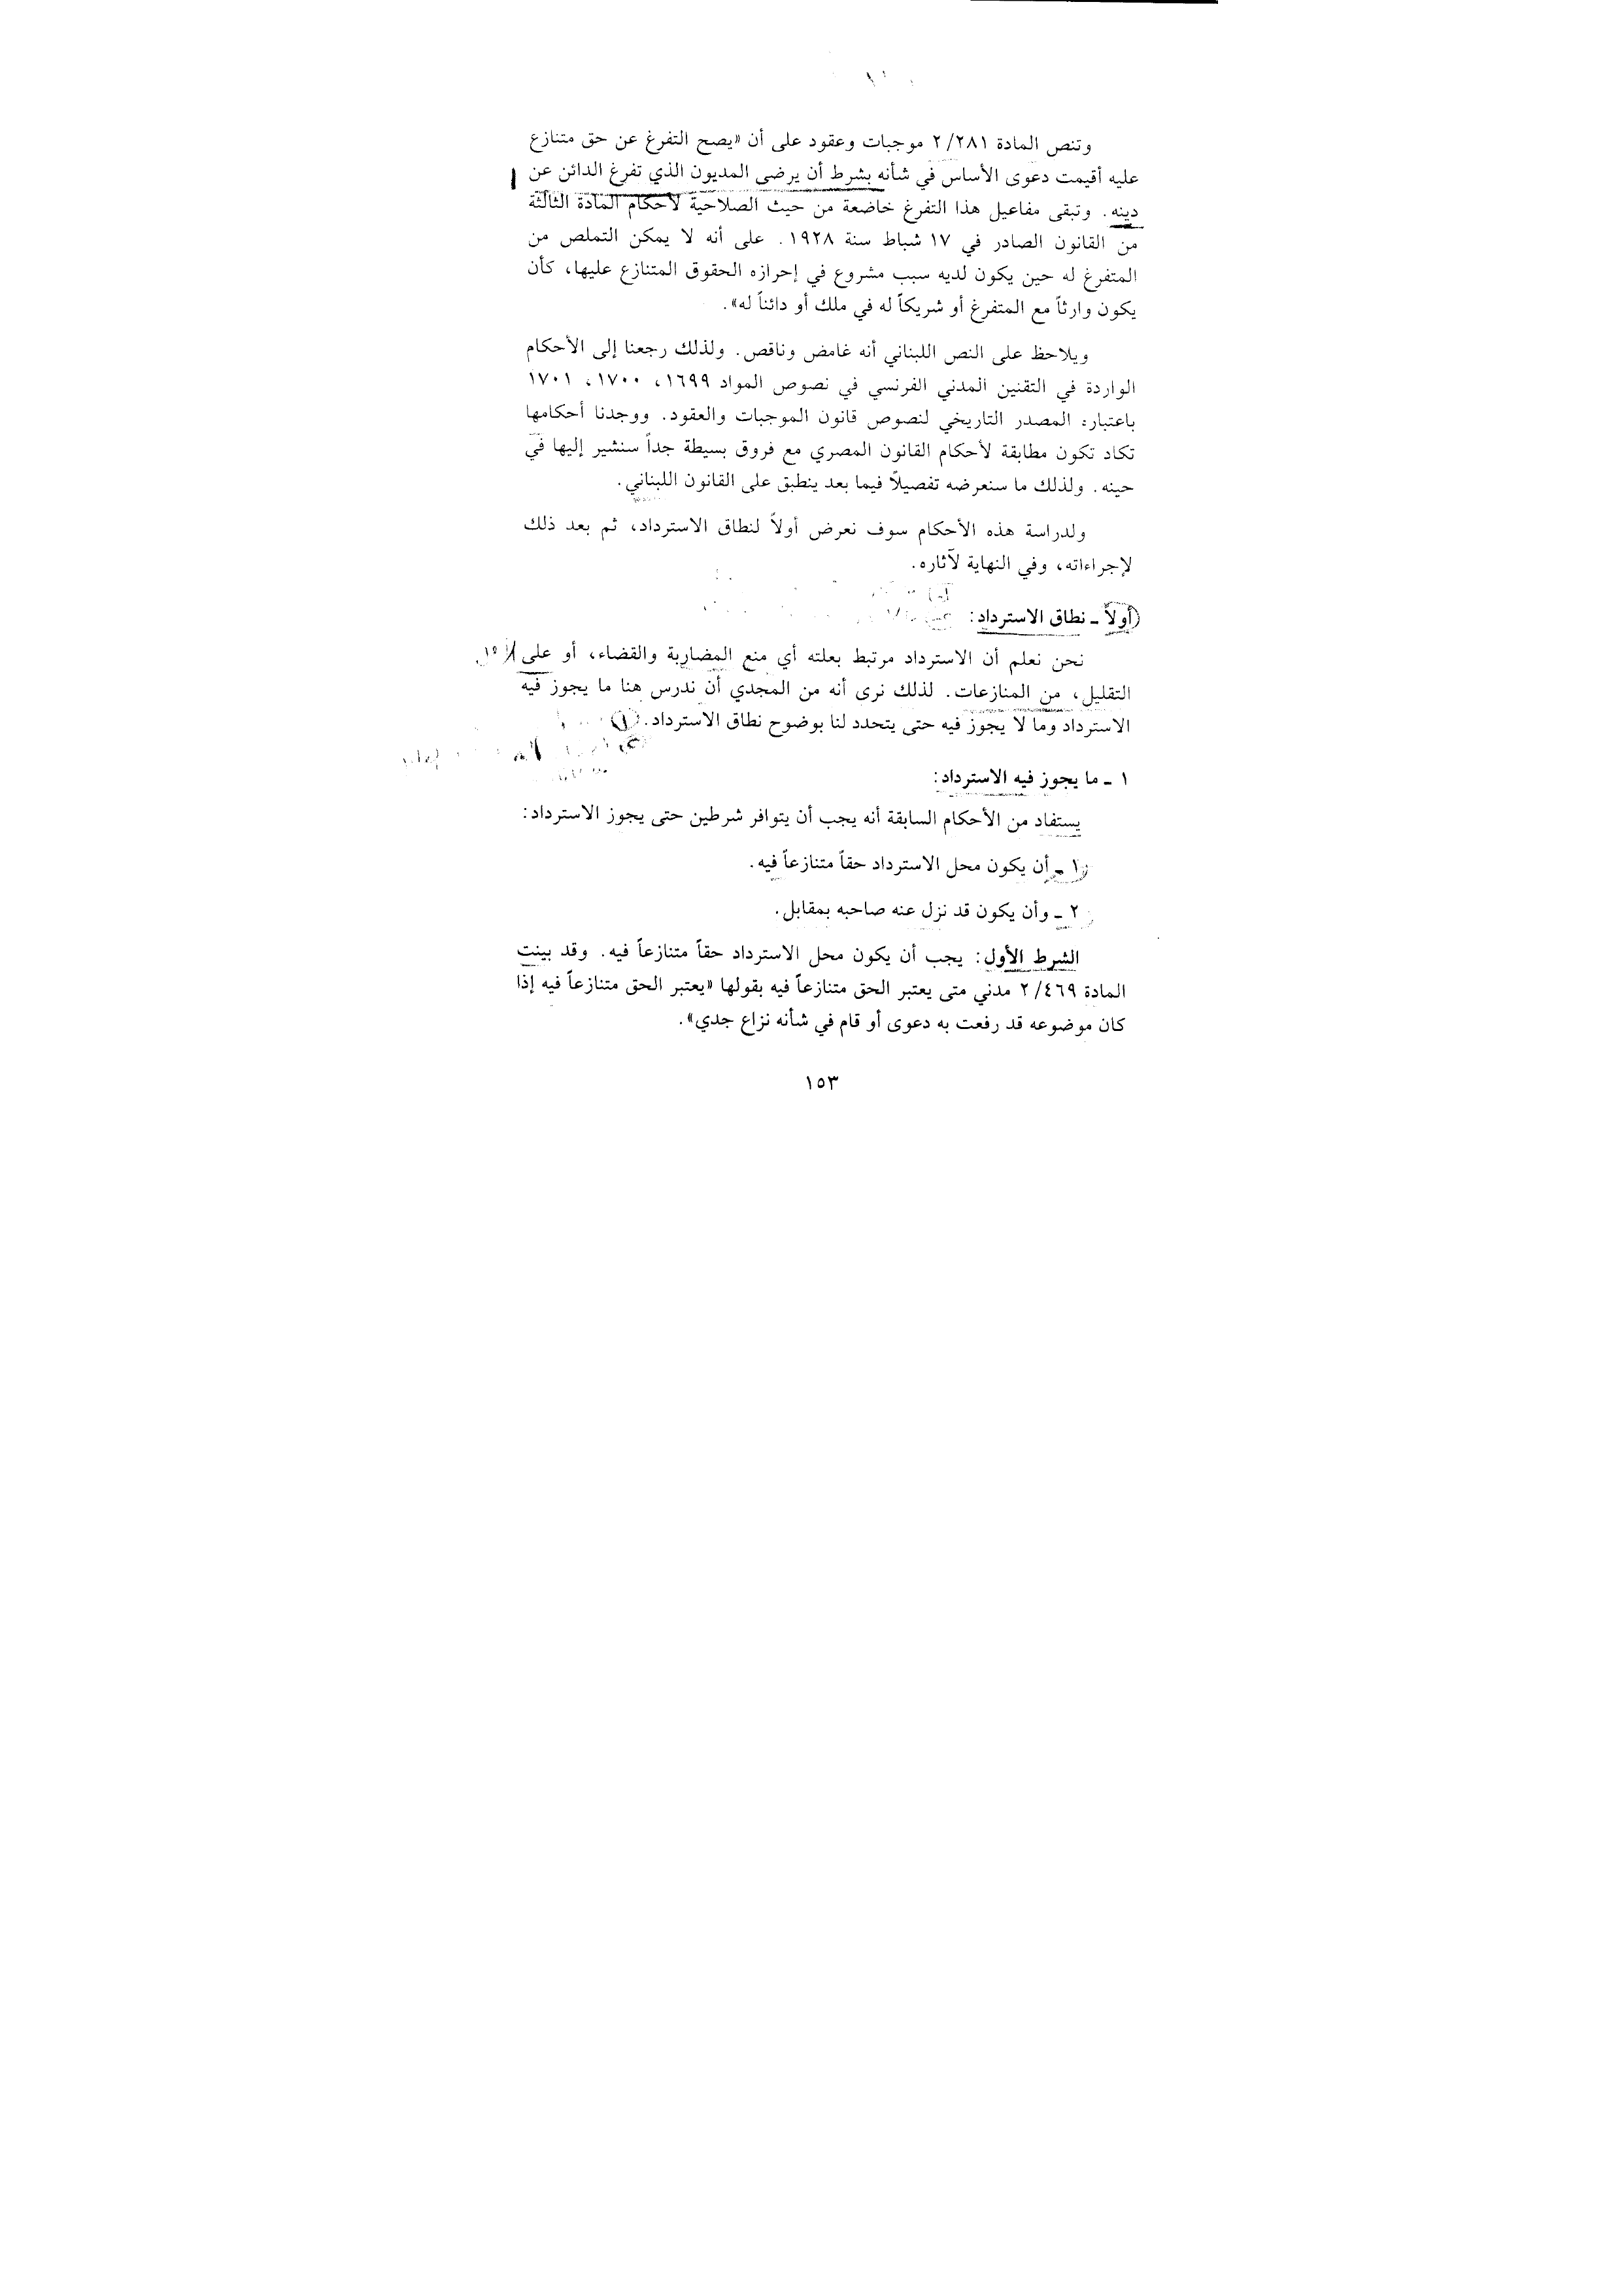 وتنص المادة ٢/٢٨١ موجبات وعقود على أن «يصح التفرغ عن حق متنازع
عليه أقيمت دعوى الأساس في شأنه بشرط أن يرضى المديون الذي تفرغ الدائن عن
دينه. وتبقى مفاعيل هذا التفرغ خاضعة من حيث الصلاحية لأحكام المادة الثالثة
من القانون الصادر في ١٧ شباط سنة ١٩٢٨. على أنه لا يمكن التملص من
المتفرغ له حين يكون لديه سبب مشروع في إحرازه الحقوق المتنازع عليها، كأن
يكون وارثاً مع المتفرغ أو شريكاً له في ملك أو دائناً له».
ويلاحظ على النص اللبناني أنه غامض وناقص. ولذلك رجعنا إلى الأحكام
الواردة في التقنين المدني الفرنسي في نصوص المواد ١٦٩٩، ١٧٠٠، ١٧٠١
باعتباره المصدر التاريخي لنصوص قانون الموجبات والعقود. ووجدنا أحكامها
تكاد تكون مطابقة لأحكام القانون المصري مع فروق بسيطة جداً سنشير إليها في
حينه. ولذلك ما سنعرضه تفصيلاً فيما بعد ينطبق على القانون اللبناني.
ولدراسة هذه الأحكام سوف نعرض أولاً لنطاق الاسترداد، ثم بعد ذلك
لإجراءاته، وفي النهاية لآثاره.
أولاً ـ نطاق الاسترداد:
نحن نعلم أن الاسترداد مرتبط بعلته أي منع المضاربة والقضاء، أو على
التقليل، من المنازعات. لذلك نرى أنه من المجدي أن ندرس هنا ما يجوز فيه
الاسترداد وما لا يجوز فيه حتى يتحدد لنا بوضوح نطاق الاسترداد.
١ ـ ما يجوز فيه الاسترداد:
يستفاد من الأحكام السابقة أنه يجب أن يتوافر شرطين حتى يجوز الاسترداد:
١ ـ أن يكون محل الاسترداد حقاً متنازعاً فيه.
٢ ـ وأن يكون قد نزل عنه صاحبه بمقابل.
الشرط الأول: يجب أن يكون محل الاسترداد حقاً متنازعاً فيه. وقد بينت
المادة ٢/٤٦٩ مدني متى يعتبر الحق متنازعاً فيه بقولها «يعتبر الحق متنازعاً فيه إذا
كان موضوعه قد رفعت به دعوى أو قام في شأنه نزاع جدي».
١٥٣